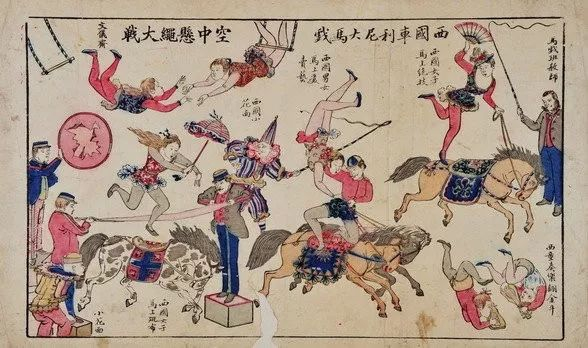 西國車利尼大馬戲
空中懸繩大戰
馬戲班教師
西國女子
馬上絕技
西國男女
馬上
賣藝
西國小
花面
西國女子
馬上
小花面
西童奏樂翻金斗